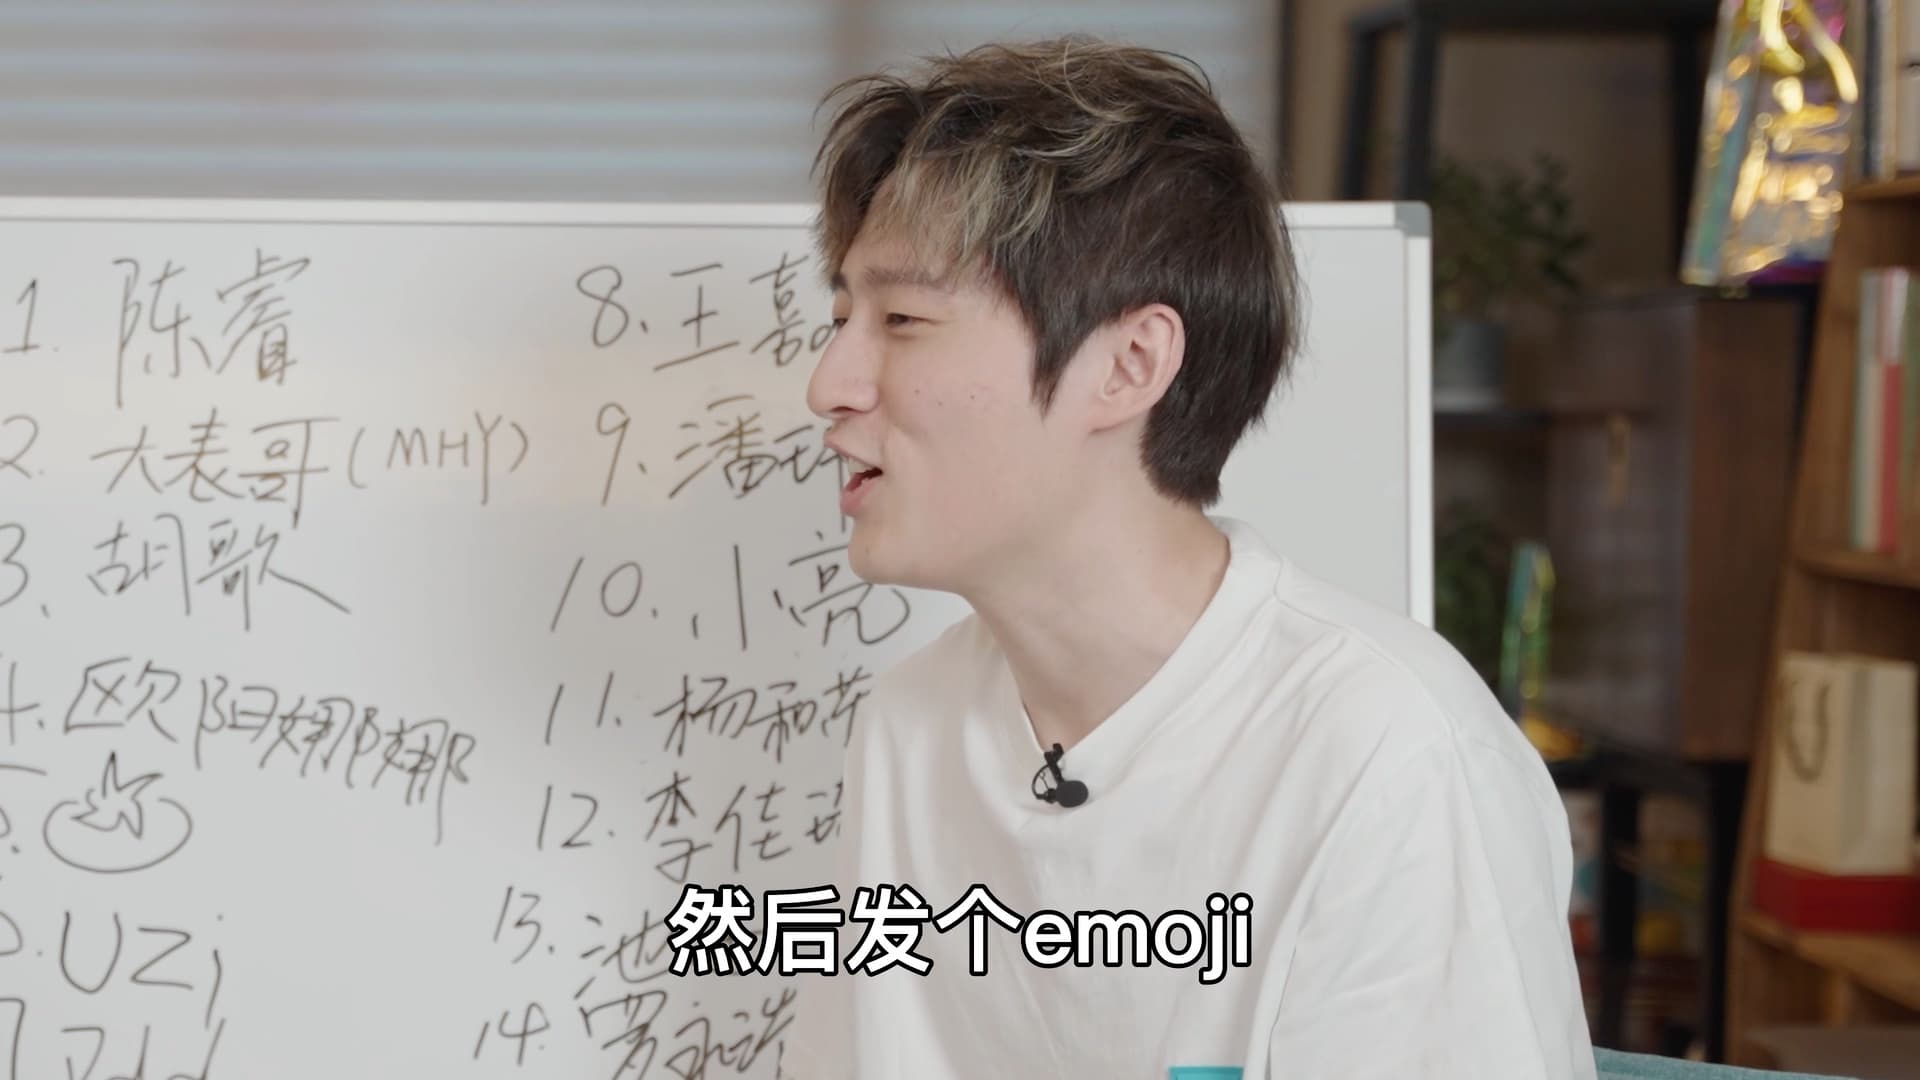 1. 陈睿
2. 大表哥(MHY)
3. 胡歌
4. 欧阳娜娜
6. UZi
7. Pdd
8. 王嘉
9. 潘
10. 小亮
11. 杨和苹
12. 李佳琦
13. 池
14. 罗永浩
然后发个emoji